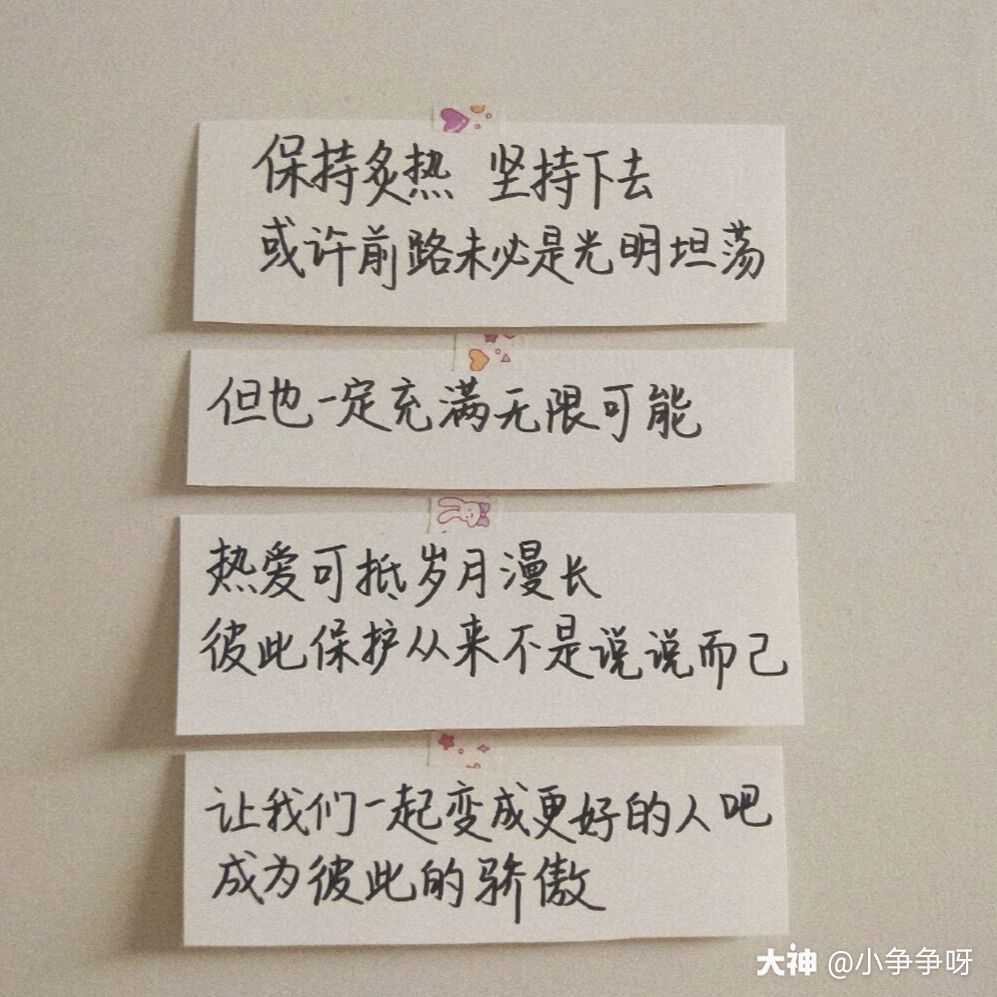 保持炙热 坚持下去
或许前路未必是光明坦荡
但也一定充满无限可能
热爱可抵岁月漫长
彼此保护从来不是说说而己
让我们一起变成更好的人吧
成为彼此的骄傲
大神 @小争争呀